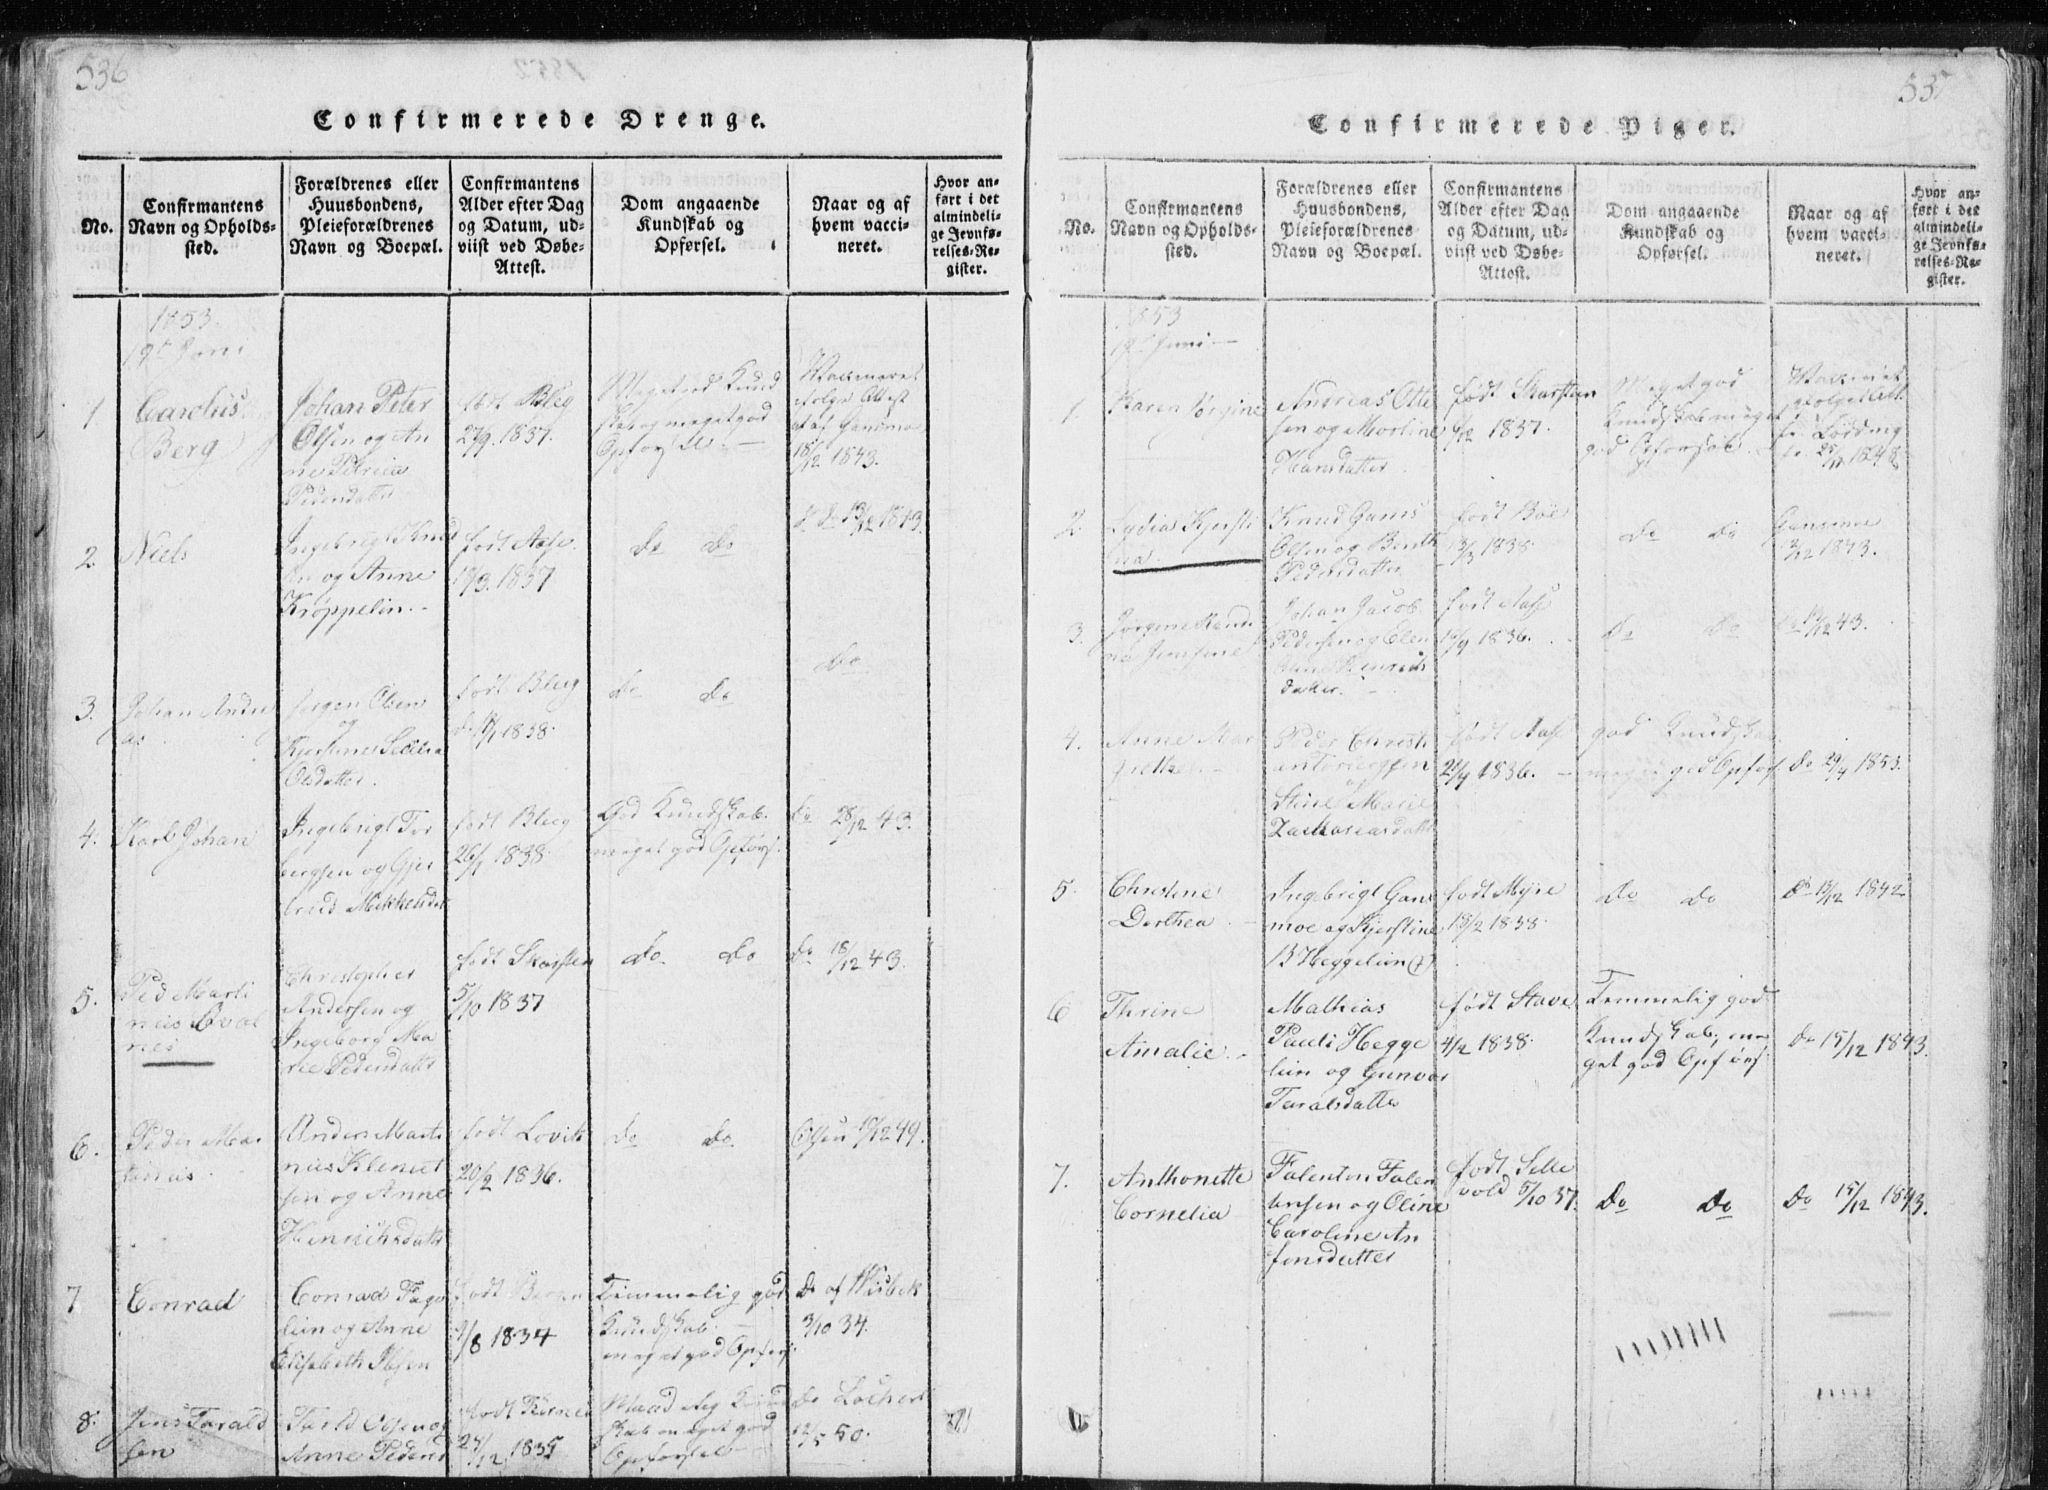 536
Confirmerede Drenge.
No.
Confirmantens
Navn og Opholds-
sted.
Forældrenes eller
Huusbondens,
Pleieforældrenes
Navn og Boepæl.
Confirmantens
Alder efter Dag
og Datum, ud-
viist ved Døbe-
Attest.
Dom angaaende
Kundskab og
Opførsel.
Naar og af
hvem vacci-
neret.
Hvor an-
ført i det
almindeli-
ge Jevnfø-
relses-Re-
gister.
1853.
19de Juni
1
Carolus
Berg
Johan Peter
Olsen og An
ne Petricia
Pedersdatter
født Bleg
27/9. 1837.
Meget god Kund
skab og meget god
Opførsel
Vaksineret
ifølge Attest
af Gansmoe
18/12 1843.
2.
Niels
Ingebrigt Knud
sen og Anne
Krøppelin.
født Aase
19/3. 1837
do do
do 13/12 1843.
3.
Johan Andre
as
Jørgen Olsen
og
Kjerstine
Olsdatter.
født Bleeg
1838.
do do
do
4.
Karl Johan
Ingebrigt Tor
bergsen og Gjer
trud Mikkelsdat
født Bleeg
26/1 1838.
God Kundskab.
meget god Opførs.
do 28/12 43.
5.
Ped Marti
nus Eval
nes
Christopher
Andersen og
Ingeborg Ma
rie Pedersdatter
født Skarsten
5/10 1837
do do
do 18/12 43.
6.
Peder Mar
tinus
Anders Marti
nus Klemet
sen og Anne
Henrichsdatter
født Lovik
20/2 1836.
do do
Olsen 19/12 49.
7
Conrad
Conrad Fago
lien og Anne
Elisabeth Ibsen
født Bergen
9/8 1834
Temmelig god
Kundskab.
meget god Opførs.
do af Wisbek
3/10 34.
8.
Jens Tarald
sen
Tarld Olsen og
Anne Peders
født
27/12 1835
Maadelig Kund
skab meget god
Opførsel
do Lochert
12/5 50.
537
Confirmerede Piger.
No.
Confirmantens
Navn og Opholds-
sted.
Forældrenes eller
Huusbondens,
Pleieforældrenes
Navn og Boepæl.
Confirmantens
Alder efter Dag
og Datum, ud-
viist ved Døbe-
Attest.
Dom angaaende
Kundskab og
Opførsel.
Naar og af
hvem vacci-
neret.
Hvor an-
ført i det
almindeli-
ge Jevnfø-
relses-Re-
gister.
1853
19de Juni
1.
Karen Jørgine
Andreas Otte
sen og Martine
Hansdatter
født Skarsten
1837.
Meget god
Kundskab meget
god Opførsel.
Vaksineret
ifølge Att.
fr. Lødding
1848
2.
Lydia Kjersti
na
Knud Gams
Olsen og Benth
Pedersdatter
født Böe
13/3 1838
do do
Gansmoe
1843.
3.
Jørgine Hanni
na Jensine
Johan Jacob
Pedersen og Elen
Henrichs
datter.
født Aase
19/9 1836.
do do
do 19/12 43.
4.
Anne Mar
grethe
Peder Christi
an Torbergsen
og
Stine Marie
Zachariasdatter
født Aase
21/4 1836.
god Kundskab
meget god Opførs.
do 29/4 1853.
5.
Christine
Dorthea
Ingebrigt Gans
moe og Kjerstine
B Heggelien (†)
født Myre
18/2 1838.
do do
do 13/12 1842
6
Thrine
Amalie.
Mathias
Pauli Hegge
lien og Gunvor
Taralsdatter
født Stave
4/2 1838.
Temmelig god
Kundskab, me
get god Opførs
do 15/12 1843.
7.
Anthonette
Cornelia
Falenten Falen
tinsen og Oline
Caroline An
fensdatter
født Selle
vold 5/10 37.
do do
do 15/12 1843.